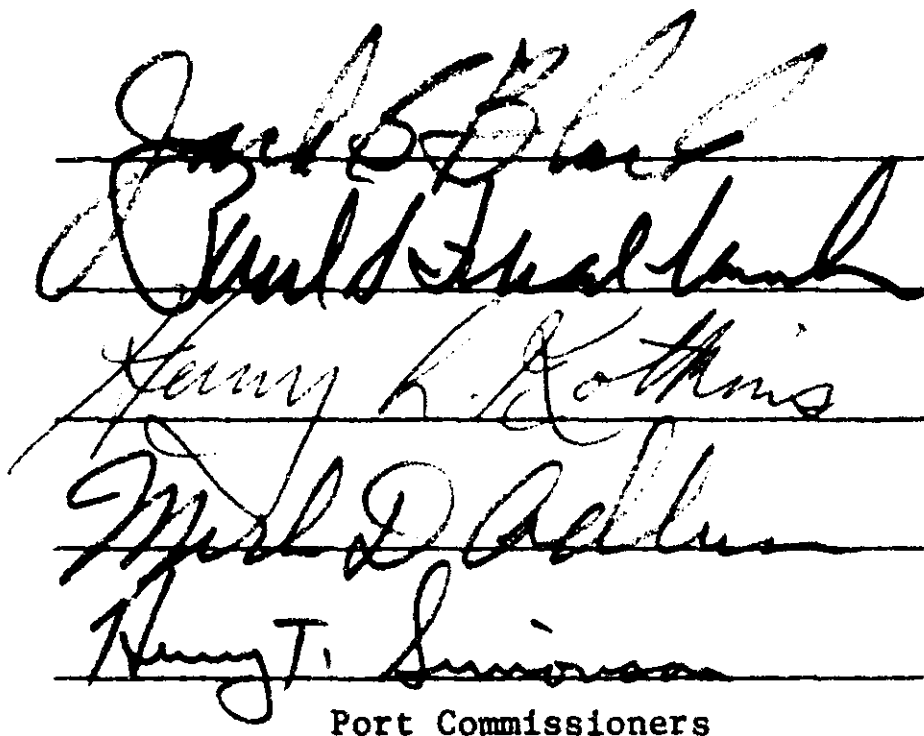 Jack S Block
Paul S Friedlander
Henry L. Kotkins
Merle D Adlum
Henry T. Simonson
Port Commissioners